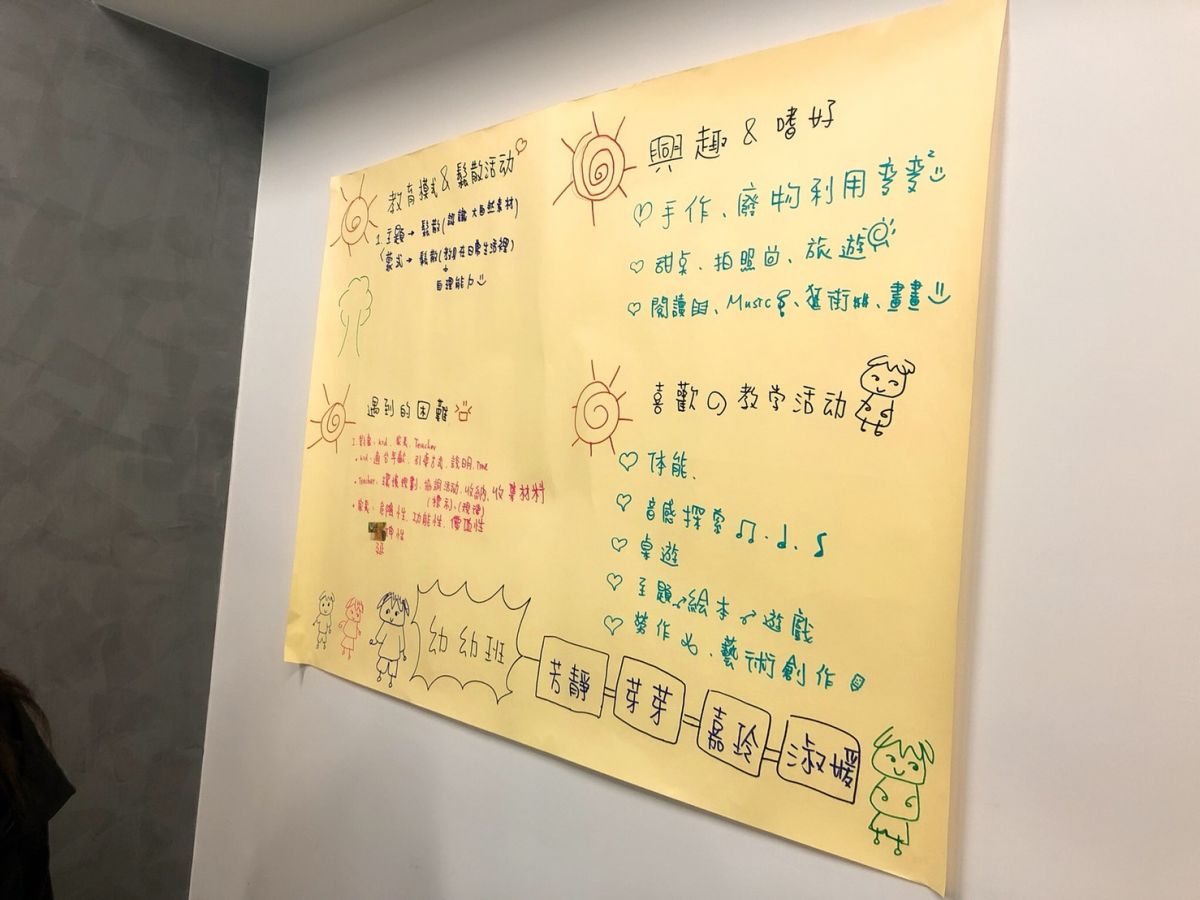 教育模式&鬆散活动
1. 主題→鬆散(認識大自然素材)
蒙式→鬆散(教具在日常生活裡)
自理能力
興趣&嗜好
手作、廢物利用
甜点、拍照、旅遊
閱讀、Music、藝術、畫畫
遇到的困難
1. 對象:kid、家長、Teacher
·kid:適合年齡、引導方式、說明、Time
·Teacher:環境規劃、協調活动、收納、收集材料
(標示)、(規律)
·家長:危險性、功能性、價值性
喜歡の教学活动
体能、
音感探索
桌遊
主題→絵本→遊戲
勞作、藝術創作
幼幼班
芳靜
芽芽
嘉玲
淑媛